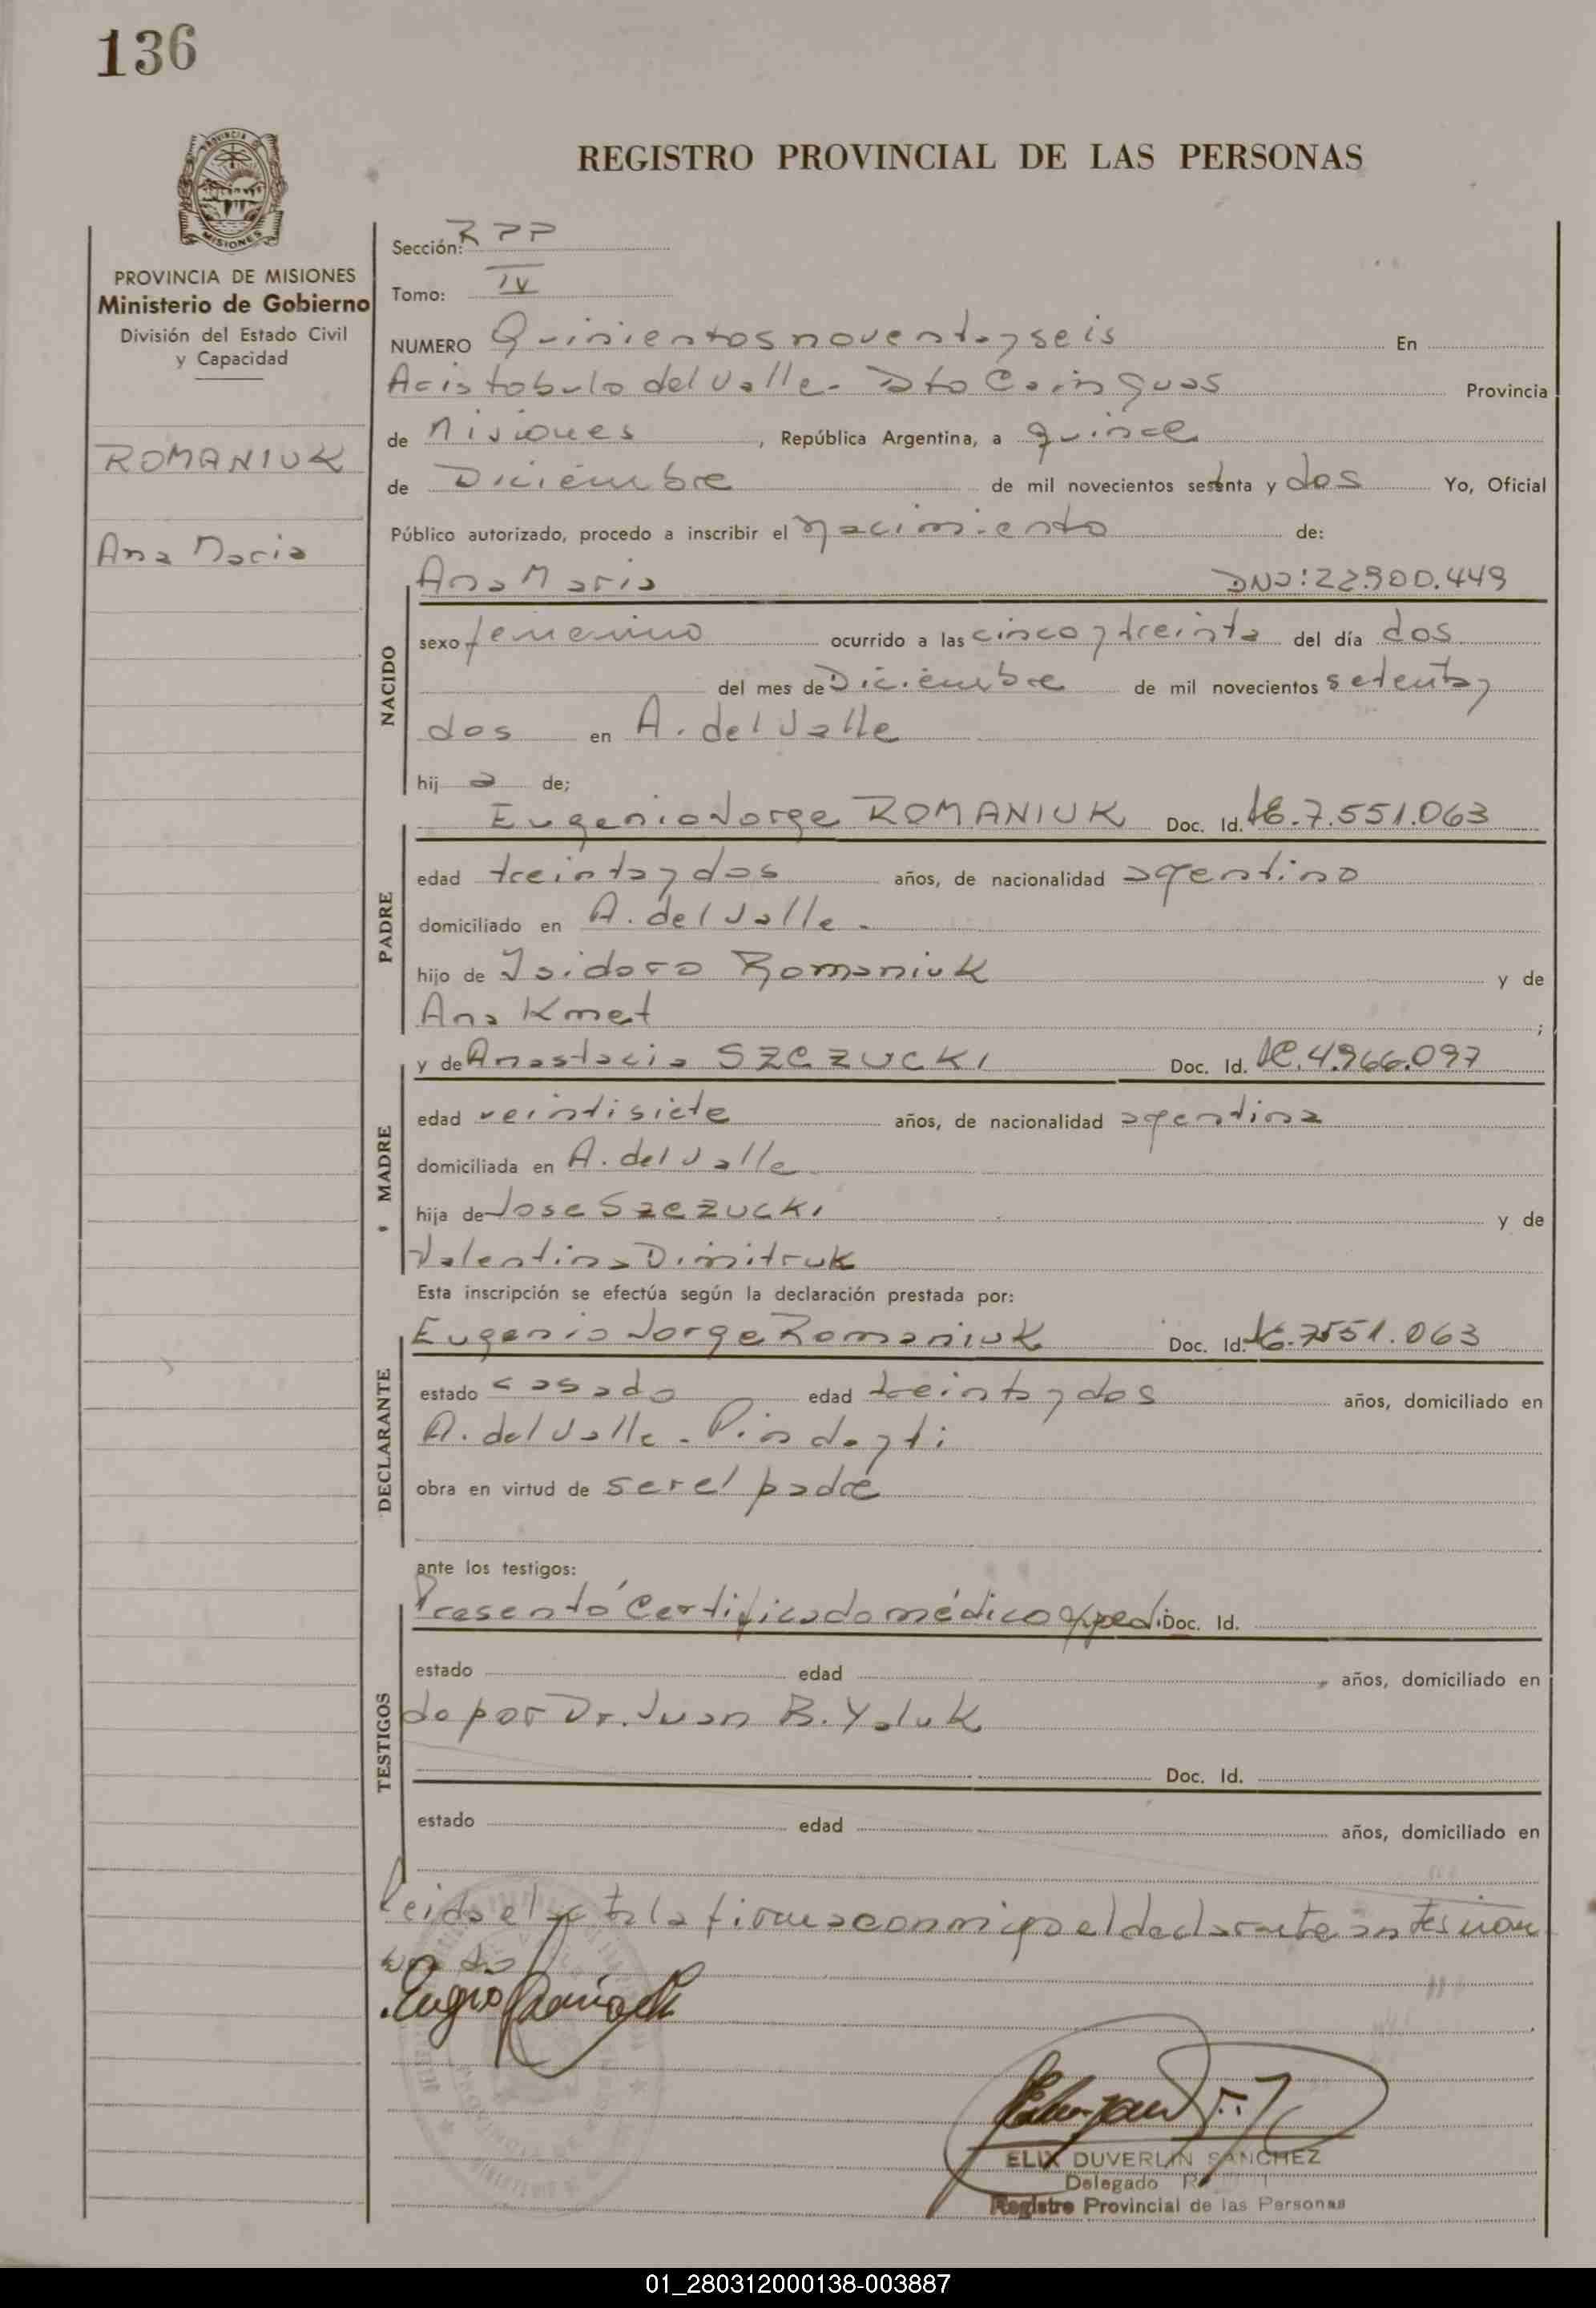 136
REGISTRO PROVINCIAL DE LAS PERSONAS
PROVINCIA DE MISIONES
Ministerio de Gobierno
División del Estado Civil
y Capacidad
ROMANIUK
Ana Maria
Sección: RPP
Tomo: IV
NUMERO Quinientos noventa y seis En
Aristobulo del Valle - Dto Cainguas Provincia
de Misiones, República Argentina, a quince
de Diciembre de mil novecientos setenta y dos Yo, Oficial
Público autorizado, procedo a inscribir el nacimiento de:
Ana Maria DNI: 22.900.449
NACIDO
sexo femenino ocurrido a las cinco y treinta del día dos
del mes de Diciembre de mil novecientos setenta y
dos en A. del Valle
hij a de;
Eugenio Jorge ROMANIUK Doc. Id. LE. 7.551.063
PADRE
edad treinta y dos años, de nacionalidad argentino
domiciliado en A. del Valle.
hijo de Isidoro Romaniuk y de
Ana Kmet ;
y de Anastacia SZCZUCKI Doc. Id. LC. 4.966.097
MADRE
edad veintisiete años, de nacionalidad argentina
domiciliada en A. del Valle
hija de Jose SZCZUCKI y de
Valentina Dimitruk
Esta inscripción se efectúa según la declaración prestada por:
Eugenio Jorge Romaniuk Doc. Id. LE. 7551.063
DECLARANTE
estado casado edad treinta y dos años, domiciliado en
A. del Valle - Pindayti
obra en virtud de ser el padre
ante los testigos:
Presentó Certificado médico expedi Doc. Id.
TESTIGOS
estado edad , años, domiciliado en
do por Dr. Juan B. Yaluk
Doc. Id.
estado edad años, domiciliado en
Leida el acta la firma conmigo el declarante antes nom
brado
ELIX DUVERLIN SANCHEZ
Delegado
Registro Provincial de las Personas
01_280312000138-003887